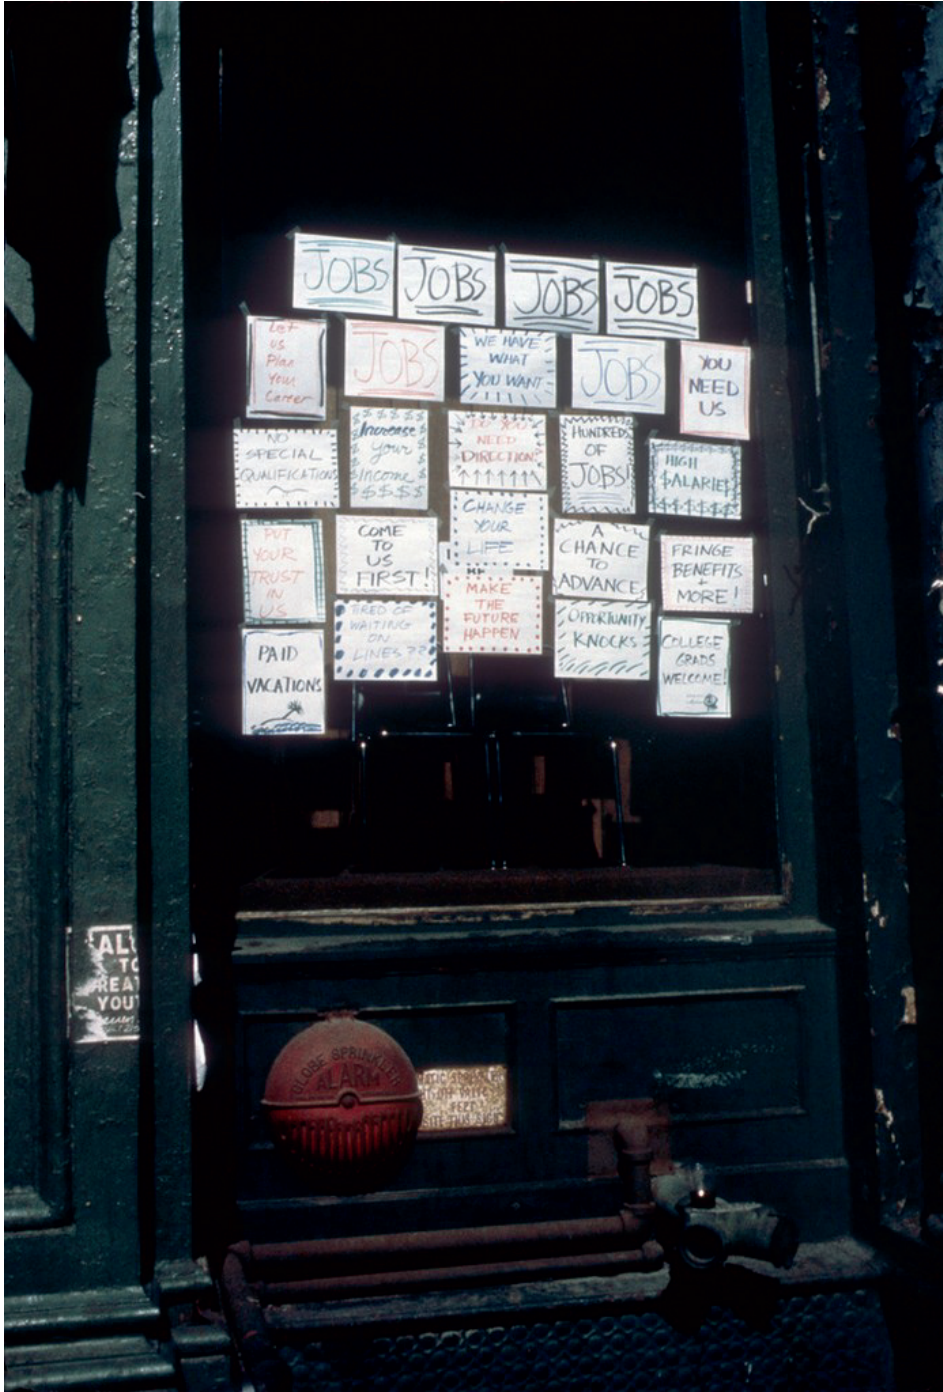 JOBS
JOBS
JOBS
JOBS
Let
us
Plan
Your
Career
JOBS
WE HAVE
WHAT
YOU WANT
JOBS
YOU
NEED
US
NO
SPECIAL
QUALIFICATIONS
$ $ $ $ $
Increase
Your
Income
$ $ $ $ $
DO YOU
NEED
DIRECTION?
HUNDREDS
OF
JOBS!
HIGH
$ALARIE$
PUT
YOUR
TRUST
IN
US
COME
TO
US
FIRST!
CHANGE
YOUR
LIFE
A
CHANCE
TO
ADVANCE
FRINGE
BENEFITS
+
MORE!
TIRED OF
WAITING
ON
LINES??
MAKE
THE
FUTURE
HAPPEN
OPPORTUNITY
KNOCKS
PAID
VACATIONS
COLLEGE
GRADS
WELCOME!
AL
TO
REA
YOU
GLOBE SPRINKLER
ALARM
FEET